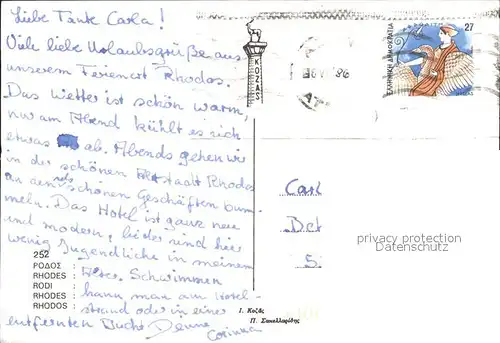 Liebe Tante Carla!
Viele liebe Urlaubsgrüße aus
unserem Ferienort Rhodos.
Das Wetter ist schön warm,
nur am Abend kühlt es sich
etwas ab. Abends gehen wir
in der schönen Altstadt Rhodos
an den schönen Geschäften bum
meln. Das Hotel ist ganz neu
und modern, leider sind hier
wenig Jugendliche in meinem
Alter. Schwimmen
kann man am Hotel-
strand oder in einer
entfernten Bucht. Deine
Corinna
252
ΡΟΔΟΣ :
RHODES :
RODI :
RHODES :
RHODOS :
ΚΟΖΑΣ
Ι. Κοζάς
Π. Σακελλαρίδης
86
27
ΕΛΛΗΝΙΚΗ ΔΗΜΟΚΡΑΤΙΑ
Carl
Det
5
privacy protection
Datenschutz